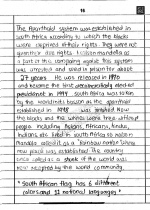 18
The Apartheid system was established in
South Africa according to which the blacks
were deprived of their rights. They were not
given their rights. Nelson Mandela as
a part of the campaign against this system
was arrested and lived in prison for about
27 years. He was released in 1990
and became the first democratically elected
president in 1994. South Africa was
by the worldwide boycott as the apartheid
established in 1948. was divided
the blacks and the whites were treated
people including Asians, Africans, Hindu,
Indians are lived in South Africa so Nelson
Mandela called it as a "Rainbow nation" when
new place was established. The country
once called as a was
now accepted by the world community.
* South African flag has 6 different
colors and 11 national languages *